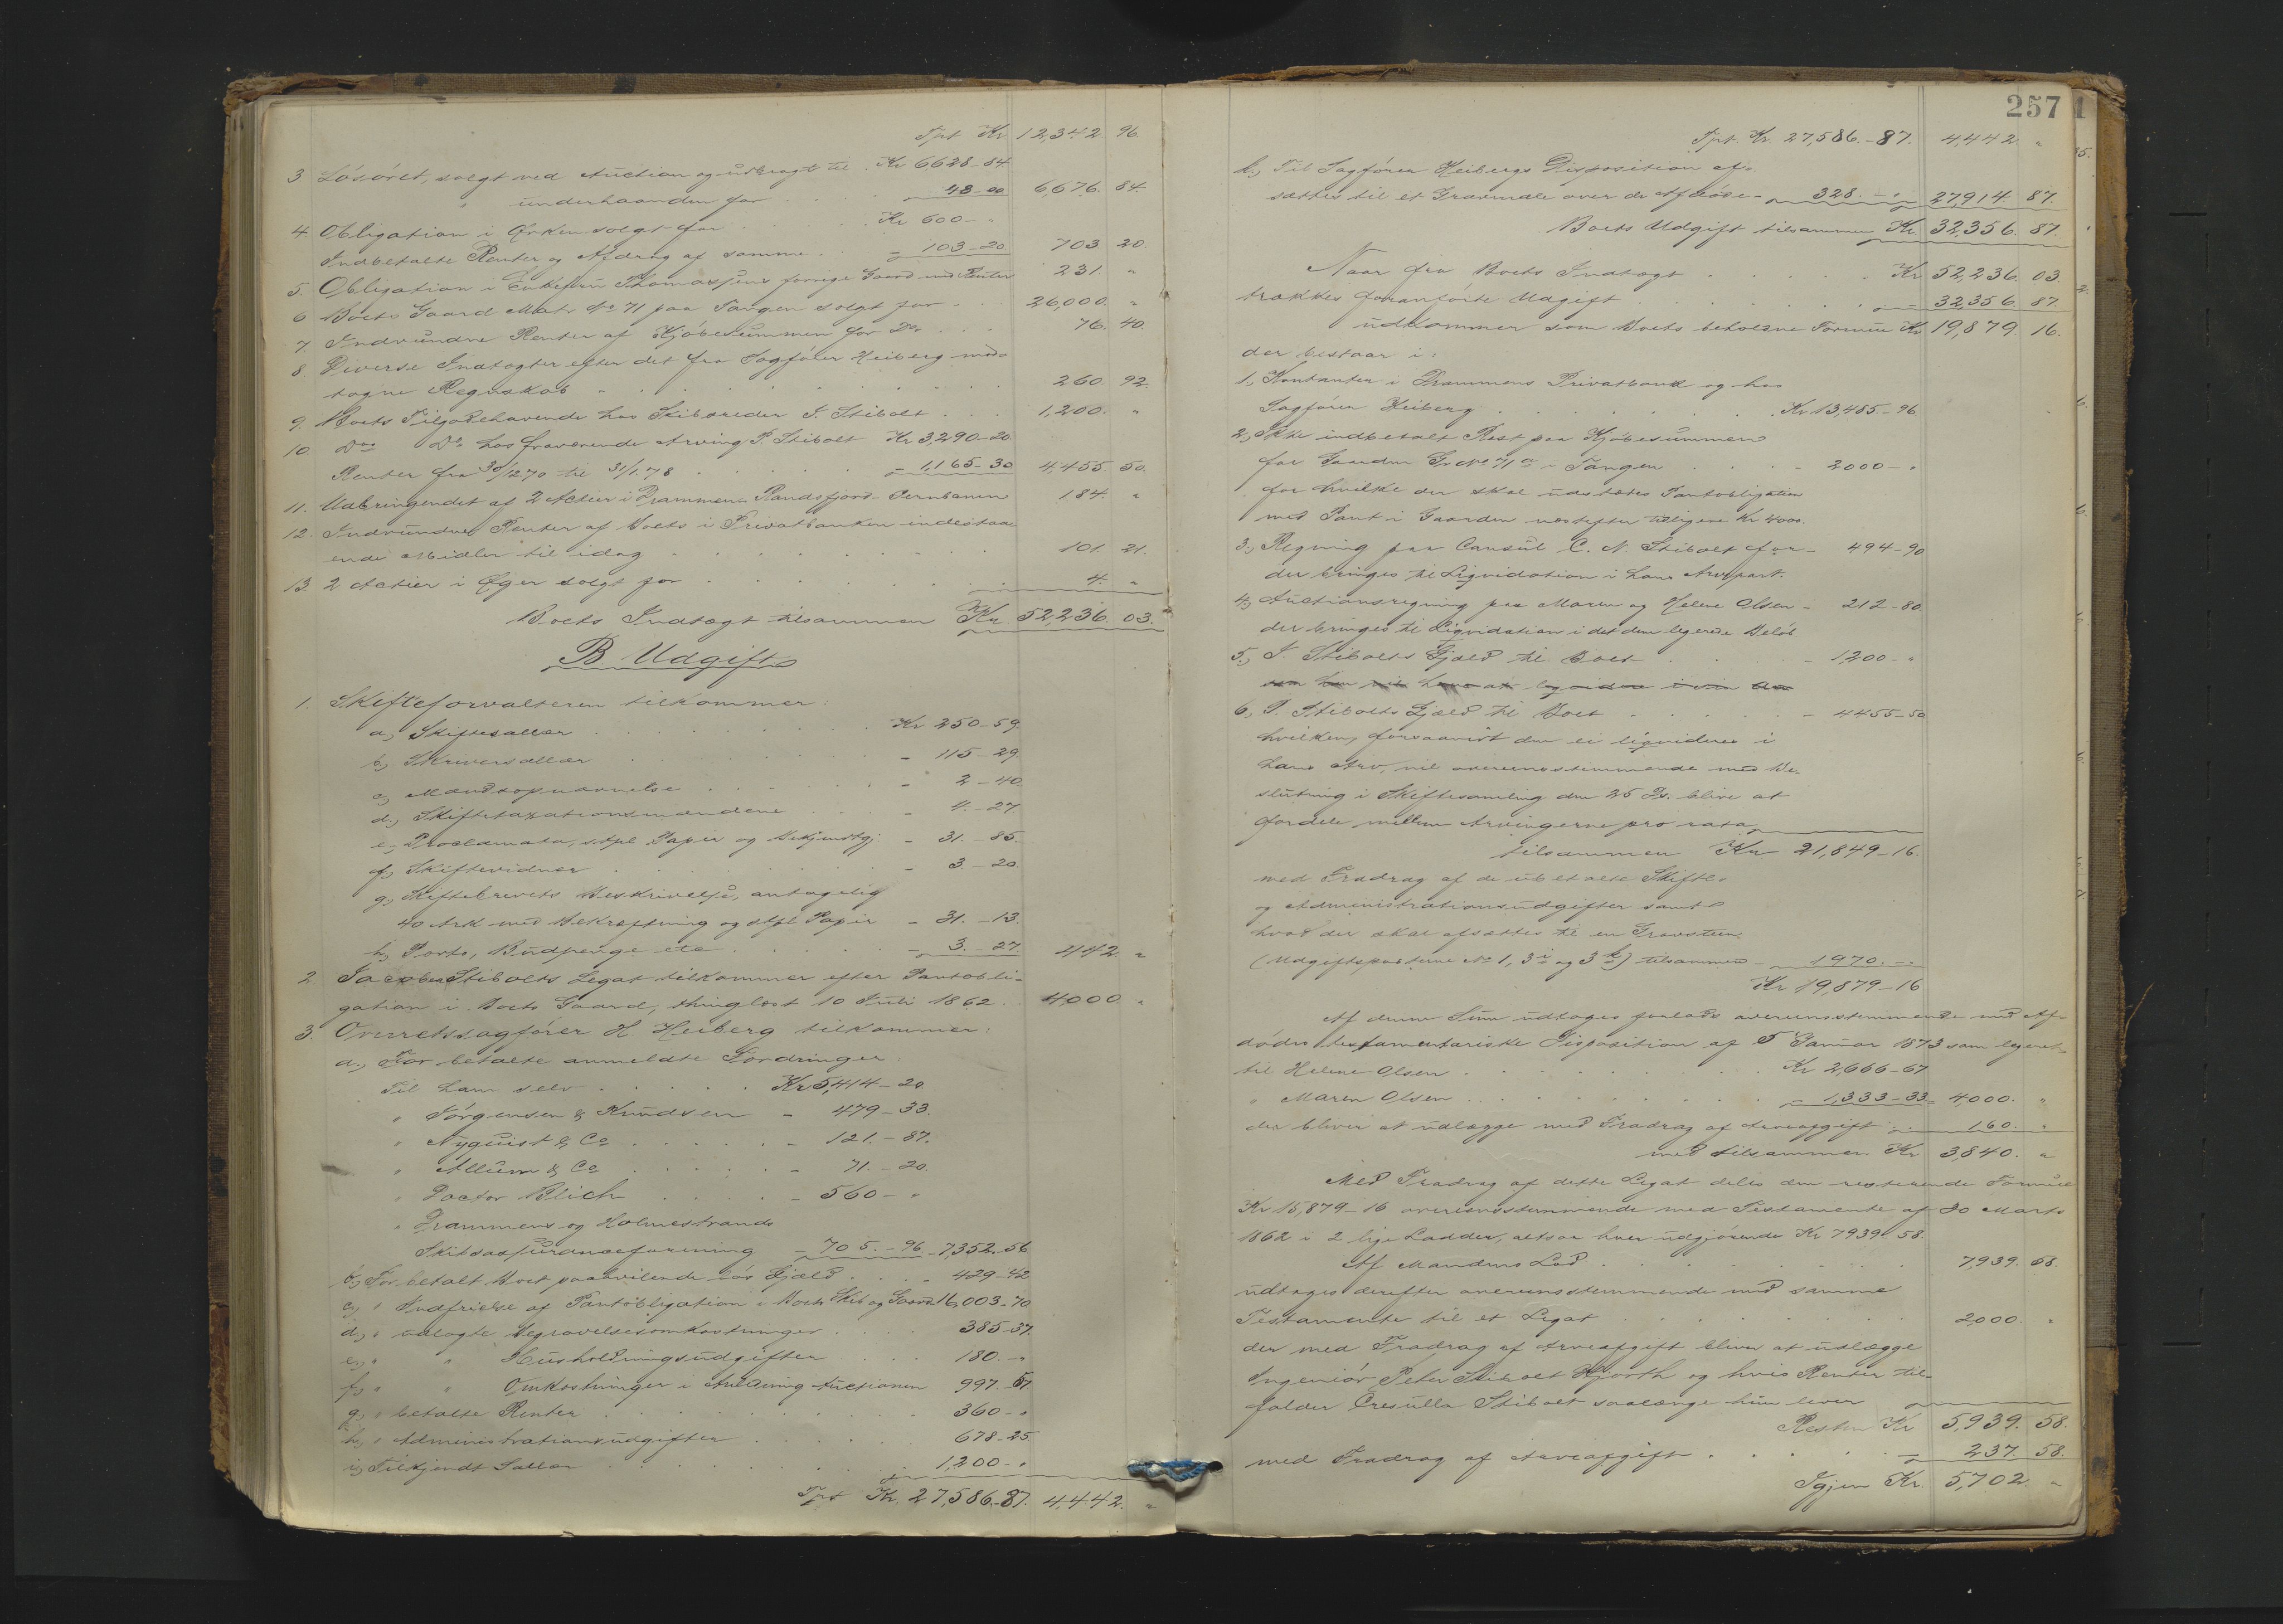 Tpt Kr 12,342 96.
3 Løsøret, solgt ved Auction og udbragt til . Kr 6,628-84.
" underhaanden for . . . . - 48-00 6,676. 84.
4 Obligation i Ørken solgt for . . . . Kr 600- "
Indbetalte Renter og Afdrag af samme . - 103-20 703 20.
5. Obligation i Thomassens forrige Gaard med Renter 231. "
6 Boets Gaard Matr No 71 paa Tangen solgt for . . 26,000. "
7. Indvundne Renter af Kjøbesummen for Do . . . 76. 40.
8. Diverse Indtægter efter det fra Sagfører Heiberg mod-
tagne Regnskab . . . . . . . . . 260. 92.
9. Boets Tilgodehavende hos Skibsreder J. Stibolt . . . 1,200. "
10. Do Do hos fraværende Arving P. Stibolt Kr 3,290-20.
Renter fra 30/12.70 til 31/1.78 . . . . - 1,165-30 4,455 50.
11. Udbringendet af 2 Actier i Drammen-Randsfjord-Jernbanen 184. "
12. Indvundne Renter af Boets i Privatbanken indestaa-
ende Midler til idag . . . . . . . . 101. 21.
13 2 Actier i Øger solgt for . . . . . . . 4. "
Boets Indtægt tilsammen Kr. 52,236. 03.
B. Udgift
1. Skifteforvalteren tilkommer:
a, Skiftesallær . . . . . . . . Kr 250-59.
b, Skriversallær . . . . . . . - 115-29.
c, Mandsopnævnelse . . . . . . - 2-40
d., Skiftetaxationsmændene . . . . - 4.-27.
e, Proclamata, stpl. Papir og Bekjendtgj. - 31.-85.
f, Skiftevidner . . . . . . . - 3-20
g, Skiftebrevets Beskrivelse, antagelig
40 Ark med Bekræftning og stpl Papir - 31.-13.
h, Porto, Budpenge etc . . . . . - 3.-27. 442. "
2 Jacob Stibolts Legat tilkommer efter Pantobli-
gation i Boets Gaard, thinglæst 10 Juli 1862 . . 4,000. "
3. Overretssagfører H. Heiberg tilkommer:
a., For betalte anmeldte Fordringer:
Til ham selv . . . . . Kr 5,414-20
" Jörgensen & Knudsen - 479-33.
" Nyquist & Co . . . . . - 121.-87.
" Allum & Co . . . . . - 71.-20.
" Doctor Blich . . . . - 560- "
" Drammens og Holmestrands
Skibsassuranceforening - 705.-96 - 7,352.-56
b, For betalt Boet paahvilende løs Gjæld . . . - 429-42
c, " Indfrielse af Pantobligation i Boets Skib og Gaard 16,003-70
d, " udlagte Begravelsesomkostninger . . . . 385-37.
e, " " Husholdningsudgifter . . . 180.-"
f, " " Omkostninger i Anledning Auctionen 997.-61
g, " betalte Renter . . . . . . . . 360-"
h, " Administrationsudgifter . . . . . 678-25
i, Tilkjendt Sallær . . . . . . . . 1,200-"
Tpt Kr. 27,586.-87. 4,442. "
257
Tpt. Kr. 27,586.-87. 4,442. "
k, Til Sagfører Heibergs Disposition af-
sættes til et Gravmæle over de Afdøde - 328.-" 27,914. 87.
Boets Udgift tilsammen Kr. 32,356. 87.
Naar fra Boets Indtægt . . . . . Kr 52,236. 03.
trækkes foranførte Udgift . . . . . . . - 32,356. 87.
udkommer som Boets beholdne Formue Kr 19,879. 16.
der bestaar i:
1, Kontanter i Drammens Privatbank og hos
Sagfører Heiberg . . . . . . . Kr 13,485.-96
2, Ikke indbetalt Rest paa Kjøbesummen
for Gaarden Gr No 71 a - Tangen . . . . - 2000-"
for hvilke der skal udstedes Pantobligation
med Pant i Gaarden næstefter tidligere Kr 4000.
3, Regning paa Consul C. N. Stibolt for - 494-90
der bringes til Liqvidation i hans Arvepart.
4, Auctionsregning paa Maren og Helene Olsen - 212-80.
der bringes til Liqvidation i det dem legerede Beløb
5., J. Stibolts Gjæld til Boet . . . . . - 1,200-"
6, P. Stibolts Gjæld til Boet . . . . . . - 4455-50
hvilken, forsaavidt den ei liqvideres i
hans Arv, vil overensstemmende med Be-
slutning i Skiftesamling den 25 Ds. blive at
fordele mellem Arvingerne pro rata
tilsammen Kr 21,849-16.
med Fradrag af de ubetalte Skifte-
og Administrationsudgifter samt
hvad der skal afsættes til en Gravsten
(Udgiftsposterne No 1, 3 i og 3 k) tilsammen - 1970.-"
Kr 19,879-16
Af denne Sum udtages forlods overensstemmende med Af-
dødes testamentariske Disposition af 5 Januar 1873 som legeret
til Helene Olsen . . . . . . . . Kr 2,666-67
" Maren Olsen . . . . . . . . . - 1,333-33 = 4,000. "
der bliver at udlægge med Fradrag af Arveafgift . . - 160. "
med tilsammen Kr 3,840. "
Med Fradrag af dette Legat deles den resterende Formue
Kr 15,879-16 overensstemmende med Testamente af 20 Marts
1862 i 2 lige Lodder, altsaa hver udgjørende Kr 7939-58.
Af Mandens Lod . . . . . . . . . 7,939. 58.
udtages derefter overensstemmende med samme
Testamente til et Legat . . . . . . . . 2,000. "
der med Fradrag af Arveafgift bliver at udlægge
Ingeniör Peter Stibolt Hjorth og hvis Renter til-
falder Cresulla Stibolt saalænge hun lever
Resten Kr 5,939. 58.
med Fradrag af Arveafgift . . . . . - 237. 58.
Igjen Kr. 5,702. "